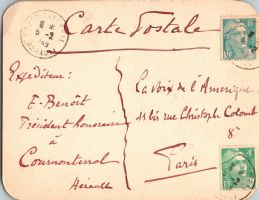 Carte Postale
Expéditeur :
E. Benoît
Président honoraire
à
Cournonterral
Hérault
La voix de l'Amérique
11 bis rue Christophe Colomb
8e
Paris
8 *
5-2
49
HERAULT